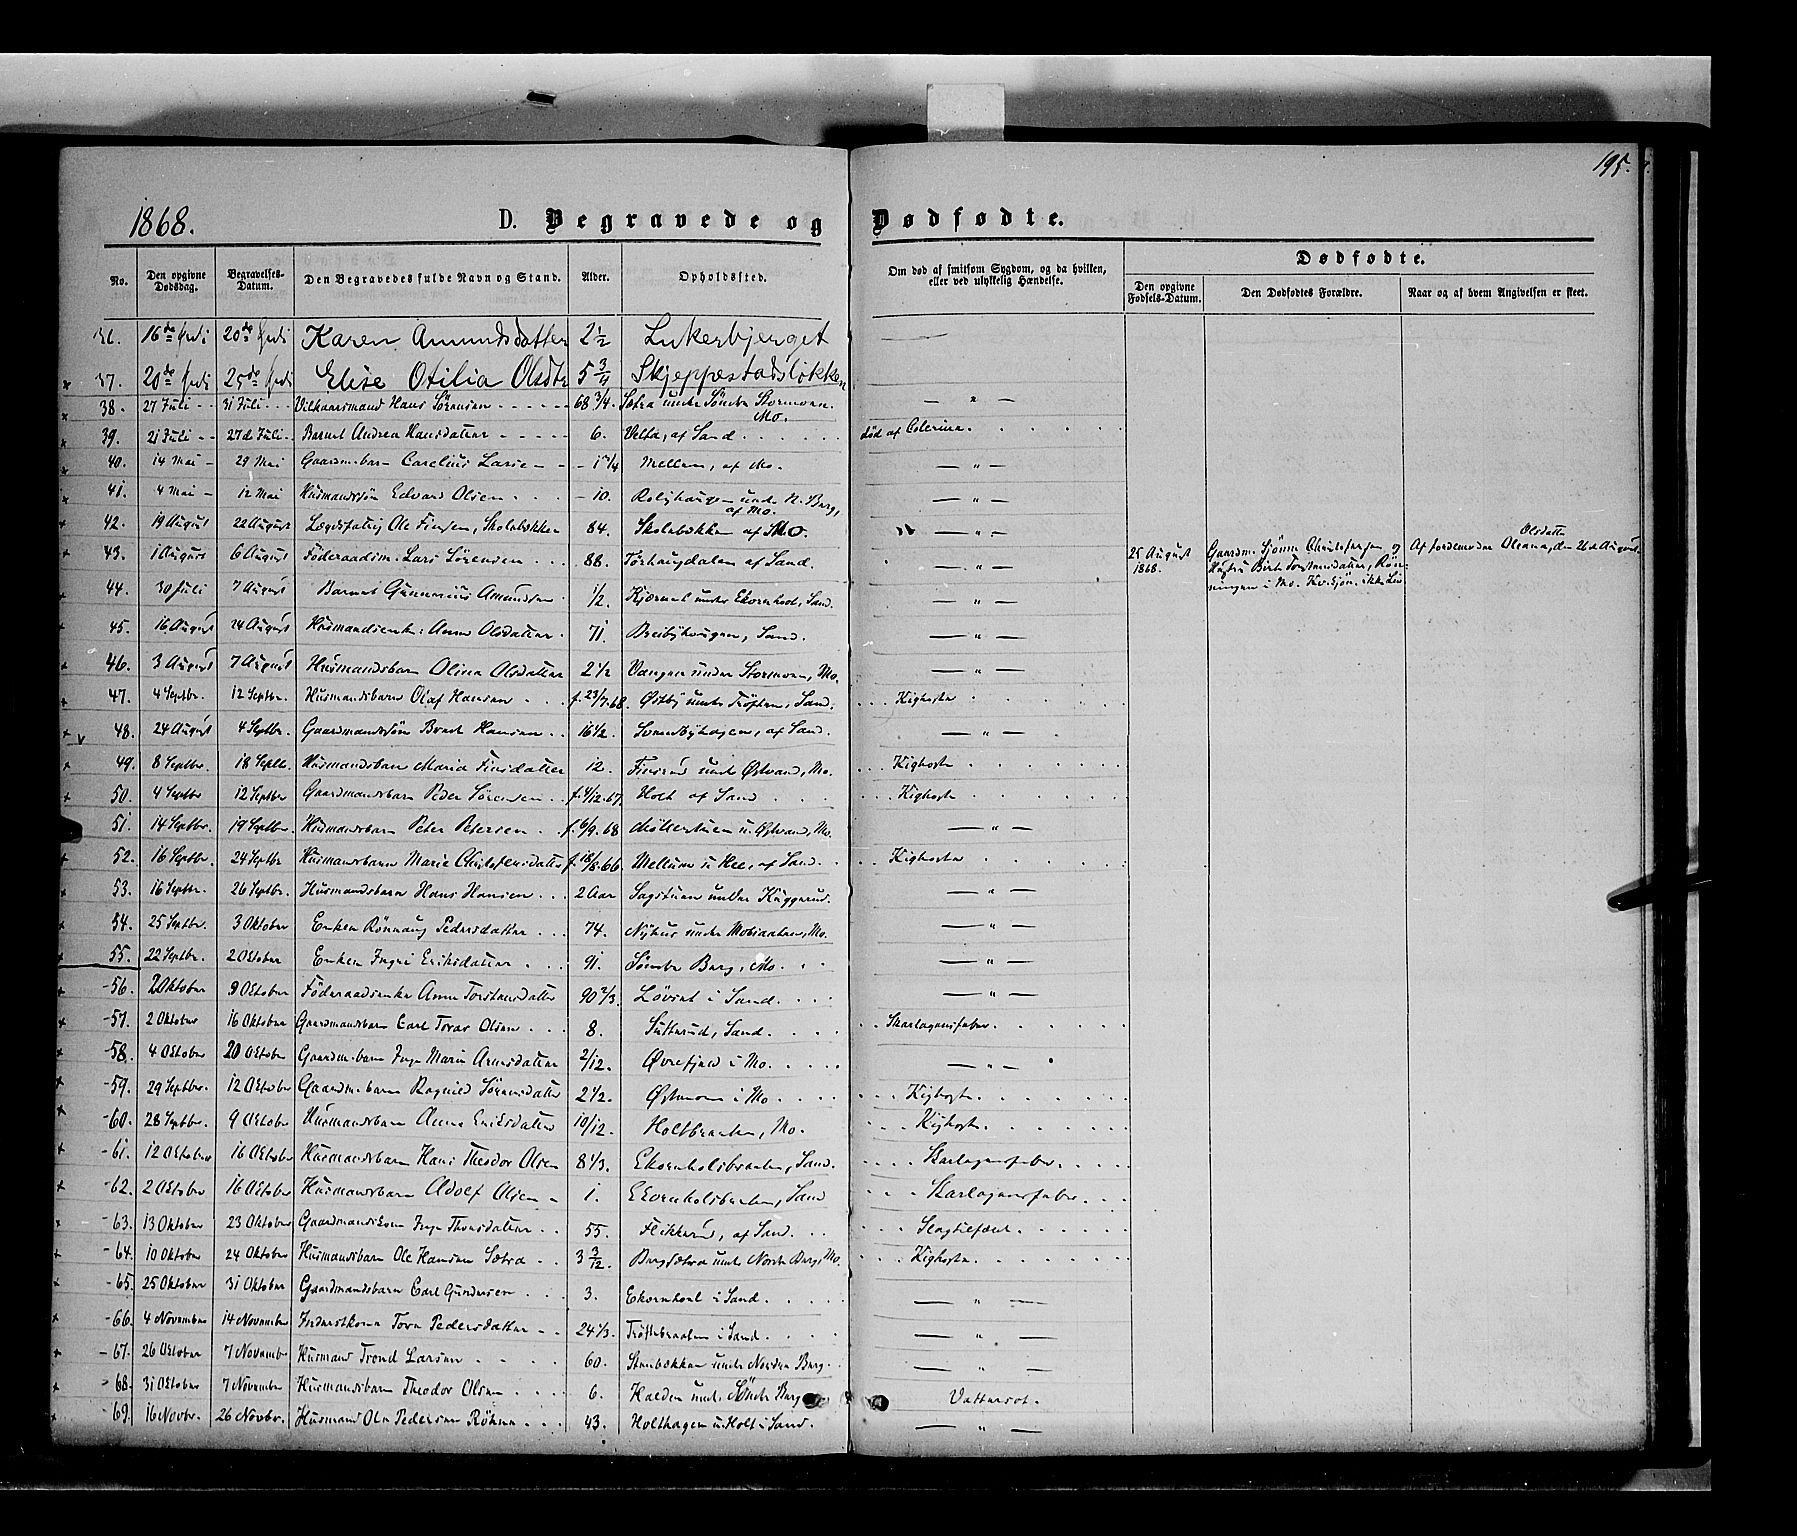 195.
1868. D. Begravede og Dødfødte.
No. Den opgivne Dødsdag. Begravelses-Datum. Den Begravedes fulde Navn og Stand. Alder. Opholdssted. Om død af smitsom Sygdom, og da hvilken, eller ved ulykkelig Hændelse. Dødfødte.
Den opgivne Fødsels-Datum. Den Dødfødtes Forældre. Naar og af hvem Angivelsen er skeet.
36. 16de Juli 20de Juli Karen Amundsdatter 2 1/2 Lukerbjerget —
37. 20de Juli 25de Juli Elise Otilia Olsdtr 5 3/4 Skjeppestadsløkken
38. 27 Juli 31 Juli Vilkaarsmand Hans Sörensen 68 3/4. Sætra under Söndre Stormoen. Mo. — " —
39. 21 Juli 27 d Juli Barnet Andrea Hansdatter 6. Velta, af Sand död af Colerina.
40. 14 Mai 29 Mai Gaardm. barn Carelius Larsen 1 3/4 Mellem, af Mo. — " —
41. 4 Mai 12 Mai Husmandssön Edvard Olsen 10. under N. Berg, af Mo. — " —
42. 19 August 22 August Lægdsfattig Ole Finsen, Skolebakken 84. Skolebakken af Mo. — " —
43. 1 August 6 August Föderaadsm. Lars Sörensen 88. Törhaugdalen af Sand. — " —
25 August 1868. Gaardm. Christophersen og Hustru Birte Torstensdatter, Rönningen i Mo. Af Jordemoder Oleana Olsdatter, den 26 d August
44. 30 Juli 7 August Barnet Gunnerius Amundsen 1/2 Kjærnet under Ekornhol, Sand. — " —
45. 16 August 24 August Husmandsenke Anne Olsdatter 71. Breibyhaugen, Sand. — " —
46. 3 August 7 August Husmandsbarn Olina Olsdatter 2 1/2 Vangen under Stormoen, Mo. — " —
47. 4 Septbr. 12 Septbr. Husmandsbarn Olaf Hansen f. 23/7.68. Østby under Tröften, Sand. Kighoste
48. 24 August 4 Septbr. Gaardmandssön Bernt Hansen 16 1/2. Svendbyhagen, af Sand. — " —
49. 8 Septbr. 18 Septbr. Husmandsbarn Maria Finsdatter 12. Finsrud under Østvand, Mo. Kighoste
50. 4 Septbr 12 Septbr Gaardmandsbarn Peder Sörensen f. 4/12.67. Holt af Sand Kighoste
51. 14 Septbr. 19 Septbr. Husmandsbarn Peter Petersen f. 6/9.68 Möllerstuen u. Østvand, Mo. — " —
52. 16 Septbr. 24 Septbr Husmandsbarn Marie Christensdatter f. 18/8.66. Mellum u Hee, af Sand. Kighoste
53. 16 Septbr. 26 Septbr. Husmandsbarn Hans Hansen 2 Aar Sagstuen under Kuggerud. — " —
54. 25 Septbr. 3 Oktober Enken Rönnaug Pedersdatter 74. Nyhus under Mobraaten, Mo. — " —
55. 22 Septbr. 2 Oktober Enken Ingri Eriksdatter 91. Söndre Berg, Mo. — " —
56. 2 Oktober 9 Oktober Föderaadsenke Anne Torstensdatter 90 2/3. Lövset i Sand. — " —
57. 2 Oktober 16 Oktober Gaardmandsbarn Carl Torar Olsen 8. Sutterud, Sand. Skarlagensfeber.
58. 4 Oktober 20 Oktober Gaardm. barn Inge Marie Arnesdatter 2/12. Øvrefjeld i Mo. — " —
59. 29 Septbr. 12 Oktober Gaardm. barn Ragnild Sörensdatter 2 1/2. Østmoen i Mo Kighoste.
60. 28 Septbr. 9 Oktober Husmandsbarn Anna Eriksdatter 10/12. Holtbraaten, Mo. Kighoste.
61. 12 Oktober 16 Oktober Husmandsbarn Hans Theodor Olsen 8 1/3. Ekornholsbraaten, Sand. Skarlagensfeber.
62. 2 Oktober 16 Oktober Husmandsbarn Adolf Olsen 1. Ekornholsbraaten, Sand Skarlagensfeber.
63. 13 Oktober 23 Oktober Gaardmandskone Inge Thorsdatter 55. Flikkerud, af Sand. Slagtilfælde.
64. 10 Oktober 24 Oktober Husmandsbarn Ole Hansen Sætra 3 3/12. Bergsætra under Nordre Berg, Mo. Kighoste.
65. 25 Oktober 31 Oktober Gaardmandsbarn Carl Gundersen 3. Ekornhol i Sand. — " —
66. 4 November 14 November Inderstkone Tora Pedersdatter 24 1/3. Tröftebraaten i Sand. — " —
67. 26 Oktober 7 November Husmand Trond Larsen 60. Stenbækken under Nordre Berg. — " —
68. 31 Oktober 7 November Husmandsbarn Theodor Olsen 6. Halden under Söndre Berg Vattersot.
69. 16 Novbr. 26 Novbr. Husmand Ole Pedersen 43. Holthagen u. Holt i Sand. — " —